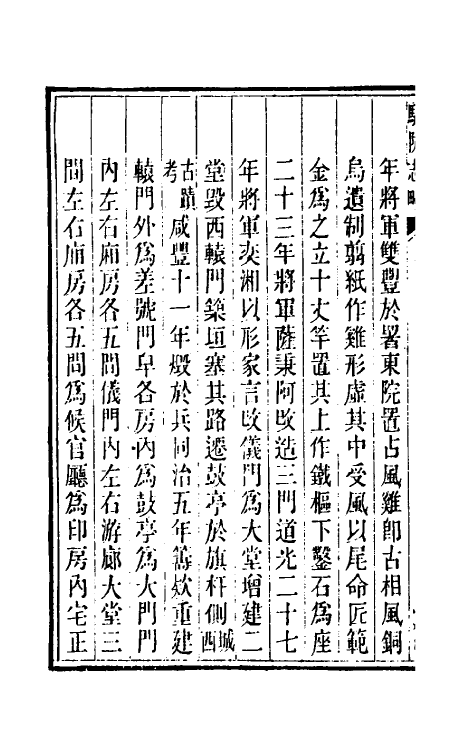 年將軍雙豐於署東院置占風雞卽古相風銅
烏遺制翦紙作雞形虛其中受風以尾命匠範
金爲之立十丈竿置其上作鐵樞下鑿石爲座
二十三年將軍薩秉阿改造三門道光二十七
年將軍奕湘以形家言改儀門爲大堂增建二
堂毀西轅門築垣塞其路遷鼓亭於旗杆側城西
古蹟考咸豐十一年燬於兵同治五年籌欵重建
轅門外爲差號門皁各房內爲鼓亭爲大門門
內左右廂房各五間儀門內左右游廊大堂三
間左右廂房各五間爲候官廳爲印房內宅正